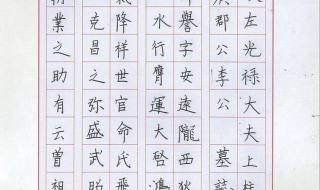 左光禄大夫上柱
郡公李公墓誌
譽字安遠隴西狄
水行膺運大啓
降祥世官命氏飛
克昌之弥盛武助
業之助有云曾祖